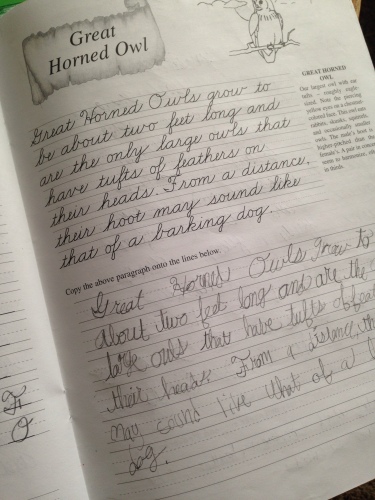 Great
Horned Owl
Great Horned Owls grow to
be about two feet long and
are the only large owls that
have tufts of feathers on
their heads. From a distance,
their hoot may sound like
that of a barking dog.
GREAT HORNED
OWL
Our largest owl with ear
tufts – roughly eagle-
sized. Note the piercing
yellow eyes on a chestnut-
colored face. This owl eats
rabbits, skunks, squirrels
and occasionally smaller
owls. The male's hoot is
higher-pitched than the
female's. A pair in concert
seem to harmonize,
in thirds.
Copy the above paragraph onto the lines below.
Great Horned Owls grow to
about two feet long and are the
large owls that have tufts of
their heads. From a distance,
may sound live that of a
dog.